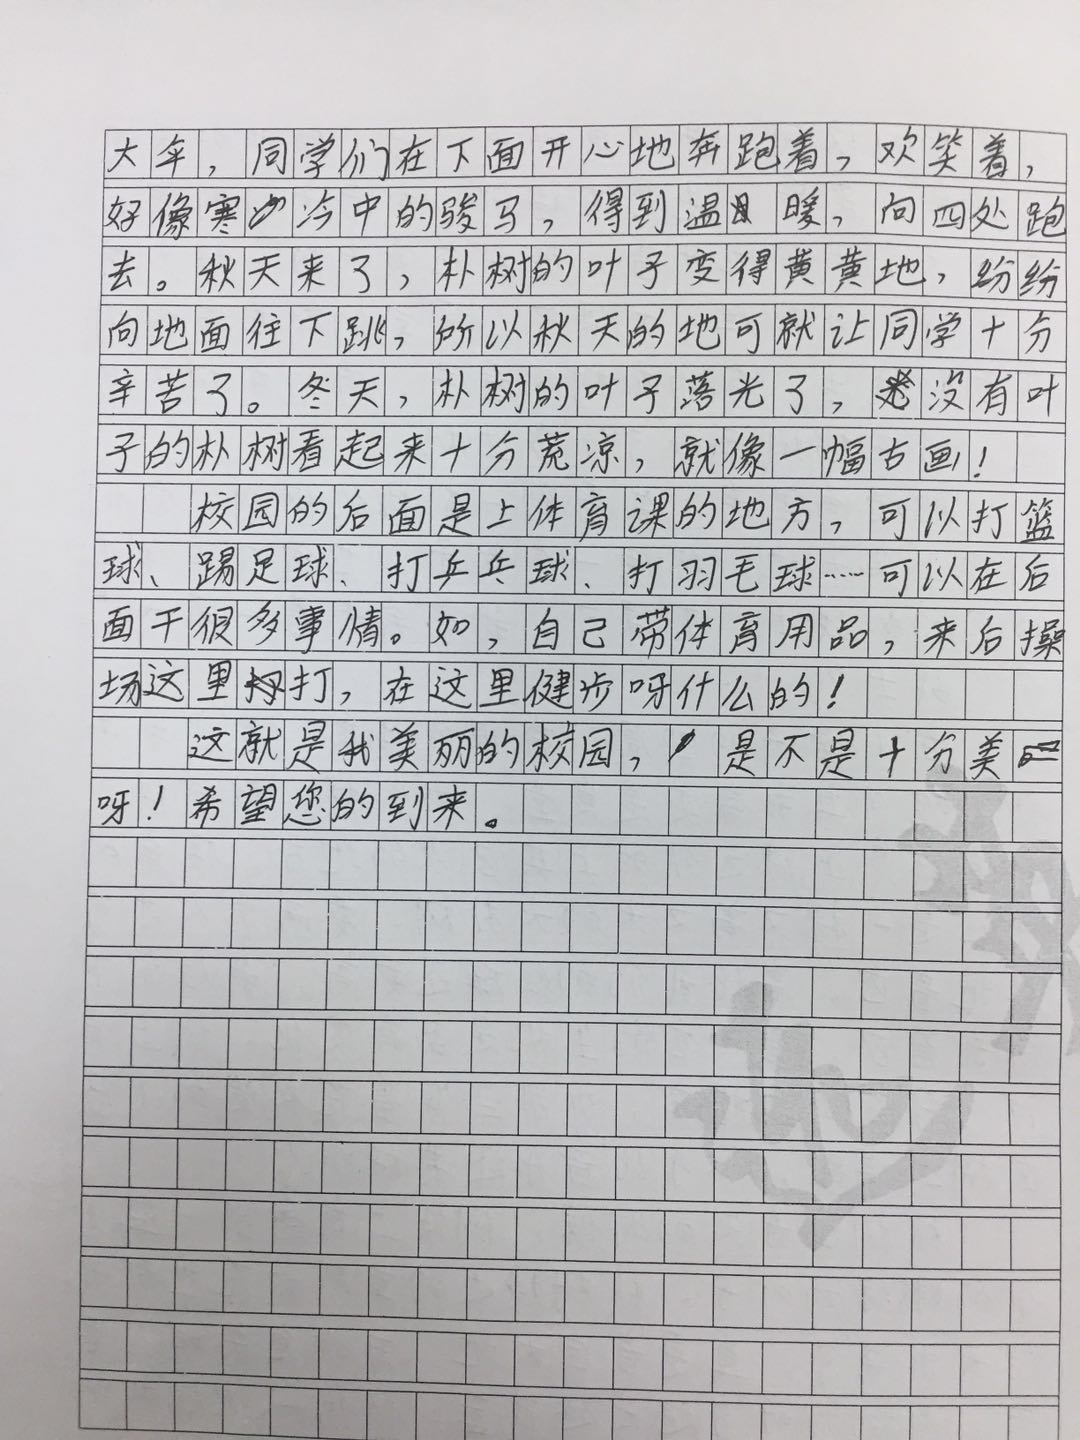 大伞，同学们在下面开心地奔跑着，欢笑着，
好像寒冷中的骏马，得到温暖，向四处跑
去。秋天来了，朴树的叶子变得黄黄地，纷纷
向地面往下跳，所以秋天的地可就让同学十分
辛苦了。冬天，朴树的叶子落光了，没有叶
子的朴树看起来十分荒凉，就像一幅古画！
校园的后面是上体育课的地方，可以打篮
球、踢足球、打乒乓球、打羽毛球……可以在后
面干很多事情。如，自己带体育用品，来后操
场这里打，在这里健步呀什么的！
这就是我美丽的校园，是不是十分美
呀！希望您的到来。